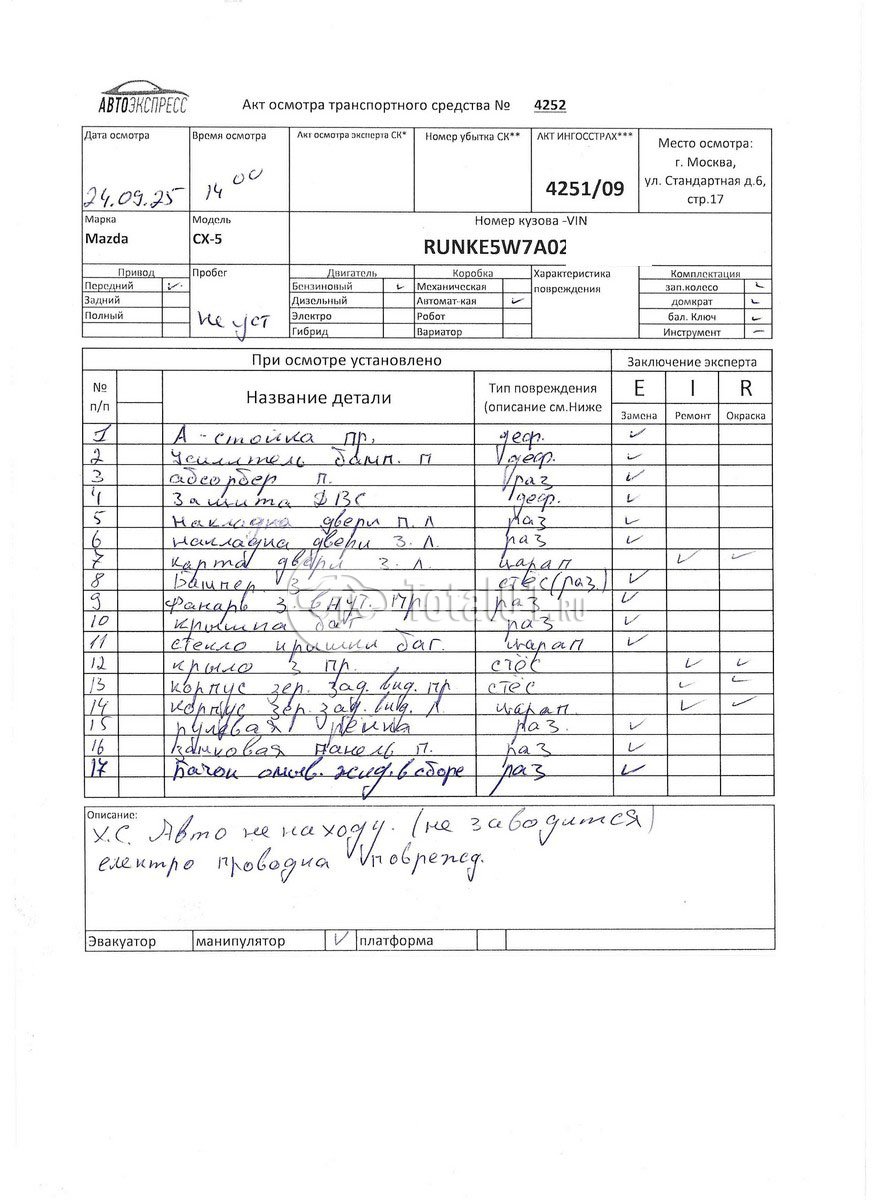 АВТОЭКСПРЕСС
Акт осмотра транспортного средства № 4252
Дата осмотра Время осмотра Акт осмотра эксперта СК* Номер убытка СК** АКТ ИНГОССТРАХ*** Место осмотра:
г. Москва,
24.09.25 14 00 4251/09 ул. Стандартная д.6,
стр.17
Марка Модель Номер кузова -VIN
Mazda CX-5 RUNKE5W7A02
Привод Пробег Двигатель Коробка Характеристика Комплектация
Передний ✓ Бензиновый ✓ Механическая повреждения зап.колесо ✓
Задний Дизельный Автомат-кая ✓ домкрат ✓
Полный не уст Электро Робот бал. Ключ ✓
Гибрид Вариатор Инструмент –
При осмотре установлено Заключение эксперта
№ п/п Название детали Тип повреждения (описание см.Ниже E I R
Замена Ремонт Окраска
1 А-стойка пр. деф. ✓
2 Усилитель бамп. п деф. ✓
3 абсорбер п. раз ✓
4 Защита ДВС деф. ✓
5 Накладка двери п. л раз ✓
6 накладка двери з. л. раз ✓
7 карта двери з. л. царап ✓ ✓
8 Бампер з стёс (раз.) ✓
9 Фанарь з. внут. пр раз ✓
10 крышка баг раз ✓
11 стекло крышки баг. царап ✓
12 крыло з пр. стёс ✓ ✓
13 корпус зер. зад. вид. пр стёс ✓ ✓
14 корпус зер. зад. вид. л. царап. ✓ ✓
15 рулевая рейка раз. ✓
16 замковая панель п. раз ✓
17 Бачок омыв. жид. в сборе раз ✓
TotalOff.RU
Описание:
Х.С. Авто не на ходу. (не заводится)
електро проводка поврежд.
Эвакуатор манипулятор ✓ платформа